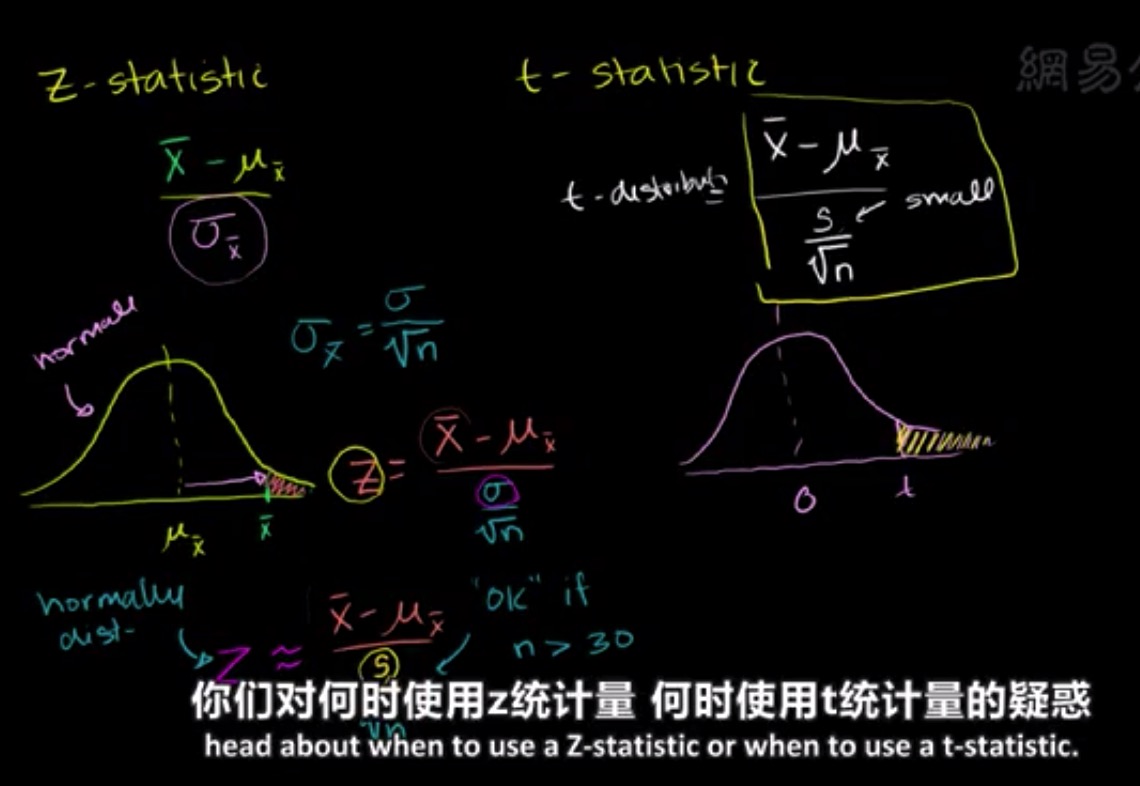 Z-statistic
x̄ - μx̄
σx̄
normal
σx̄ = σ/√n
μx̄
x̄
Z = x̄ - μx̄
σ
√n
normally
dist-
Z ≈ x̄ - μx̄
s
√n
"OK" if
n > 30
t-statistic
t-distributi
x̄ - μx̄
s
√n
small
0
t
網易
你们对何时使用z统计量 何时使用t统计量的疑惑
head about when to use a Z-statistic or when to use a t-statistic.